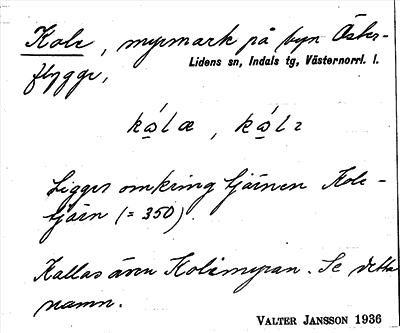 Kole, myrmark på byn Öster-
Lidens sn, Indals tg, Västernorrl. l.
flygge,
kålæ, kålɛ
Ligger omkring tjärnen Kole-
tjärn (= 350).
Kallas även Kolmyran. Se detta
namn.
VALTER JANSSON 1936